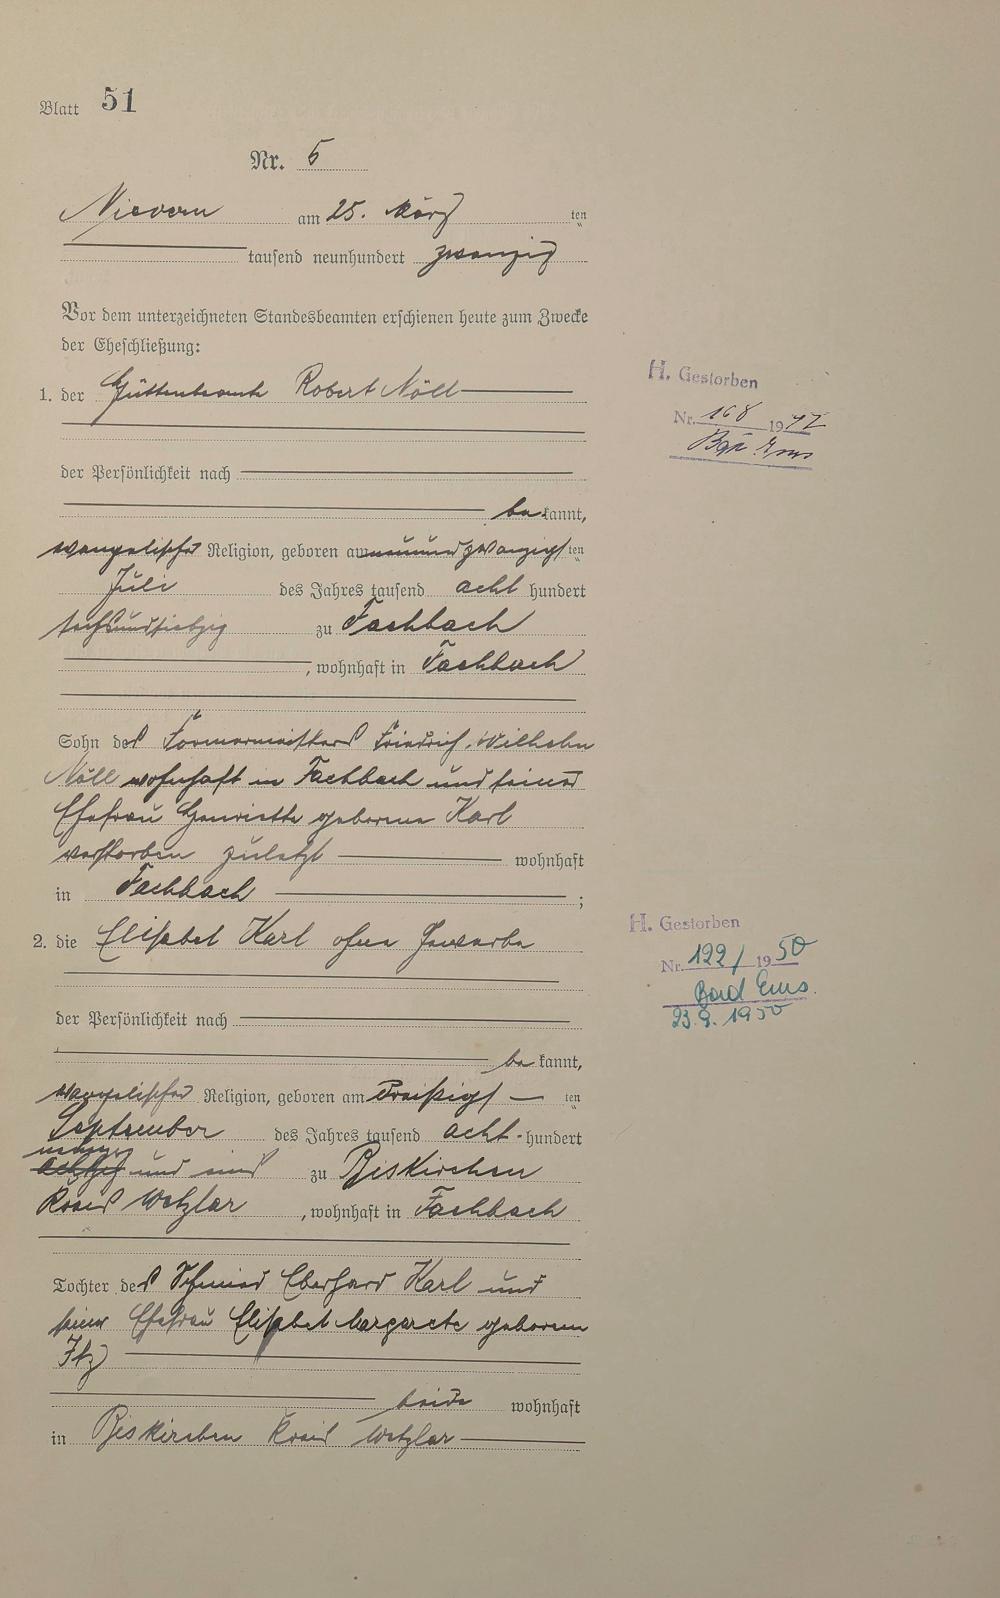 Blatt 51
Nr. 5
Nievern am 25. März ten
tausend neunhundert zwanzig
Vor dem unterzeichneten Standesbeamten erschienen heute zum Zwecke
der Eheschließung:
1. der Hüttenbeamte Robert Nöll
der Persönlichkeit nach
bekannt,
evangelischer Religion, geboren am neunundzwanzigsten
Juli des Jahres tausend acht hundert
sechsundsiebzig zu Fachbach
, wohnhaft in Fachbach
Sohn des Formermeisters Friedrich Wilhelm
Nöll wohnhaft in Fachbach und seiner
Ehefrau Henriette geborene Karl
verstorben zuletzt wohnhaft
in Fachbach ;
2. die Elisabet Karl ohne Gewerbe
der Persönlichkeit nach
bekannt,
evangelischer Religion, geboren am dreißigsten
September des Jahres tausend acht hundert
und eins zu Biskirchen
Kreis Wetzlar , wohnhaft in Fachbach
Tochter des Schmied Eberhard Karl und
seiner Ehefrau Elisabet Margarete geborene
Itz
beide wohnhaft
in Biskirchen Kreis Wetzlar
H. Gestorben
Nr. 168 1942
Bad Ems
H. Gestorben
Nr. 122/ 1950
Bad Ems.
23.9.1950